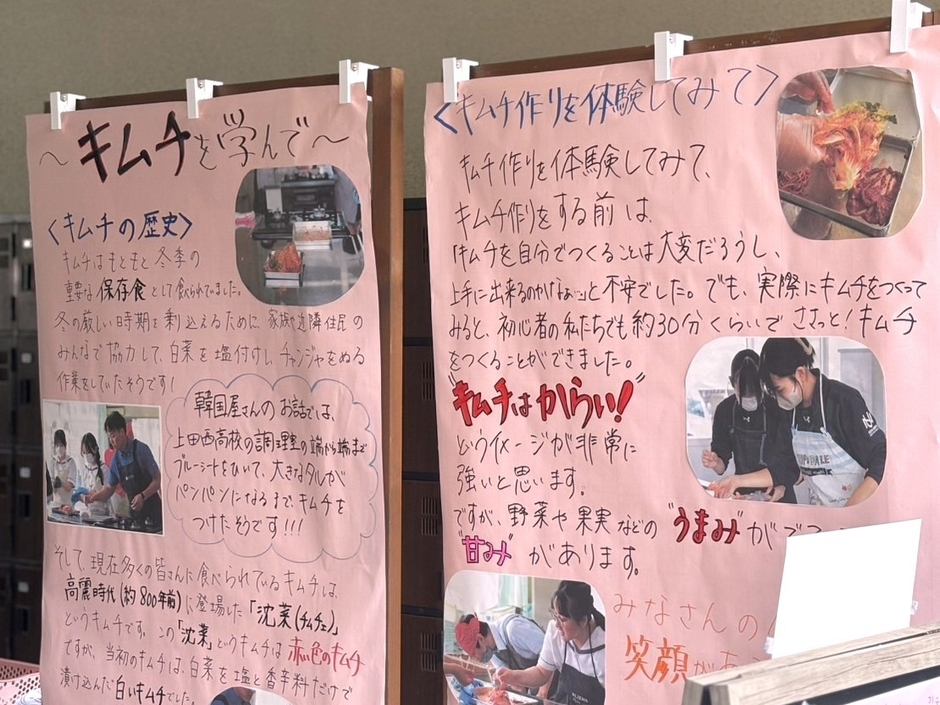 ～キムチを学んで～
〈キムチの歴史〉
キムチはもともと冬季の
重要な保存食として食べられていました。
冬の厳しい時期を乗り込えるために、家族や近隣住民の
みんなで協力して、白菜を塩付けし、チャンジャをぬる
作業をしていたそうです！
韓国屋さんのお話では、
上田西高校の調理室の端から端まで
ブルーシートをひいて、大きなタルが
パンパンになるまで、キムチを
つけたそうです!!!
そして、現在多くの皆さんに食べられているキムチは、
高麗時代(約800年前)に登場した「沈菜(チムチェ)」
というキムチです。この「沈菜」というキムチは赤色のキムチ
ですが、当初のキムチは、白菜を塩と香辛料だけで
漬け込んだ白いキムチでした。
〈キムチ作りを体験してみて〉
キムチ作りを体験してみて、
キムチ作りをする前は、
「キムチを自分でつくることは大変だろうし、
上手に出来るのかなぁ…」と不安でした。でも、実際にキムチをつくって
みると、初心者の私たちでも約30分くらいでささっと！キムチ
をつくることができました。
"キムチはからい!"
というイメージが非常に
強いと思います。
ですが、野菜や果実などの"うまみ"が
"甘み"があります。
みなさんの
笑顔が